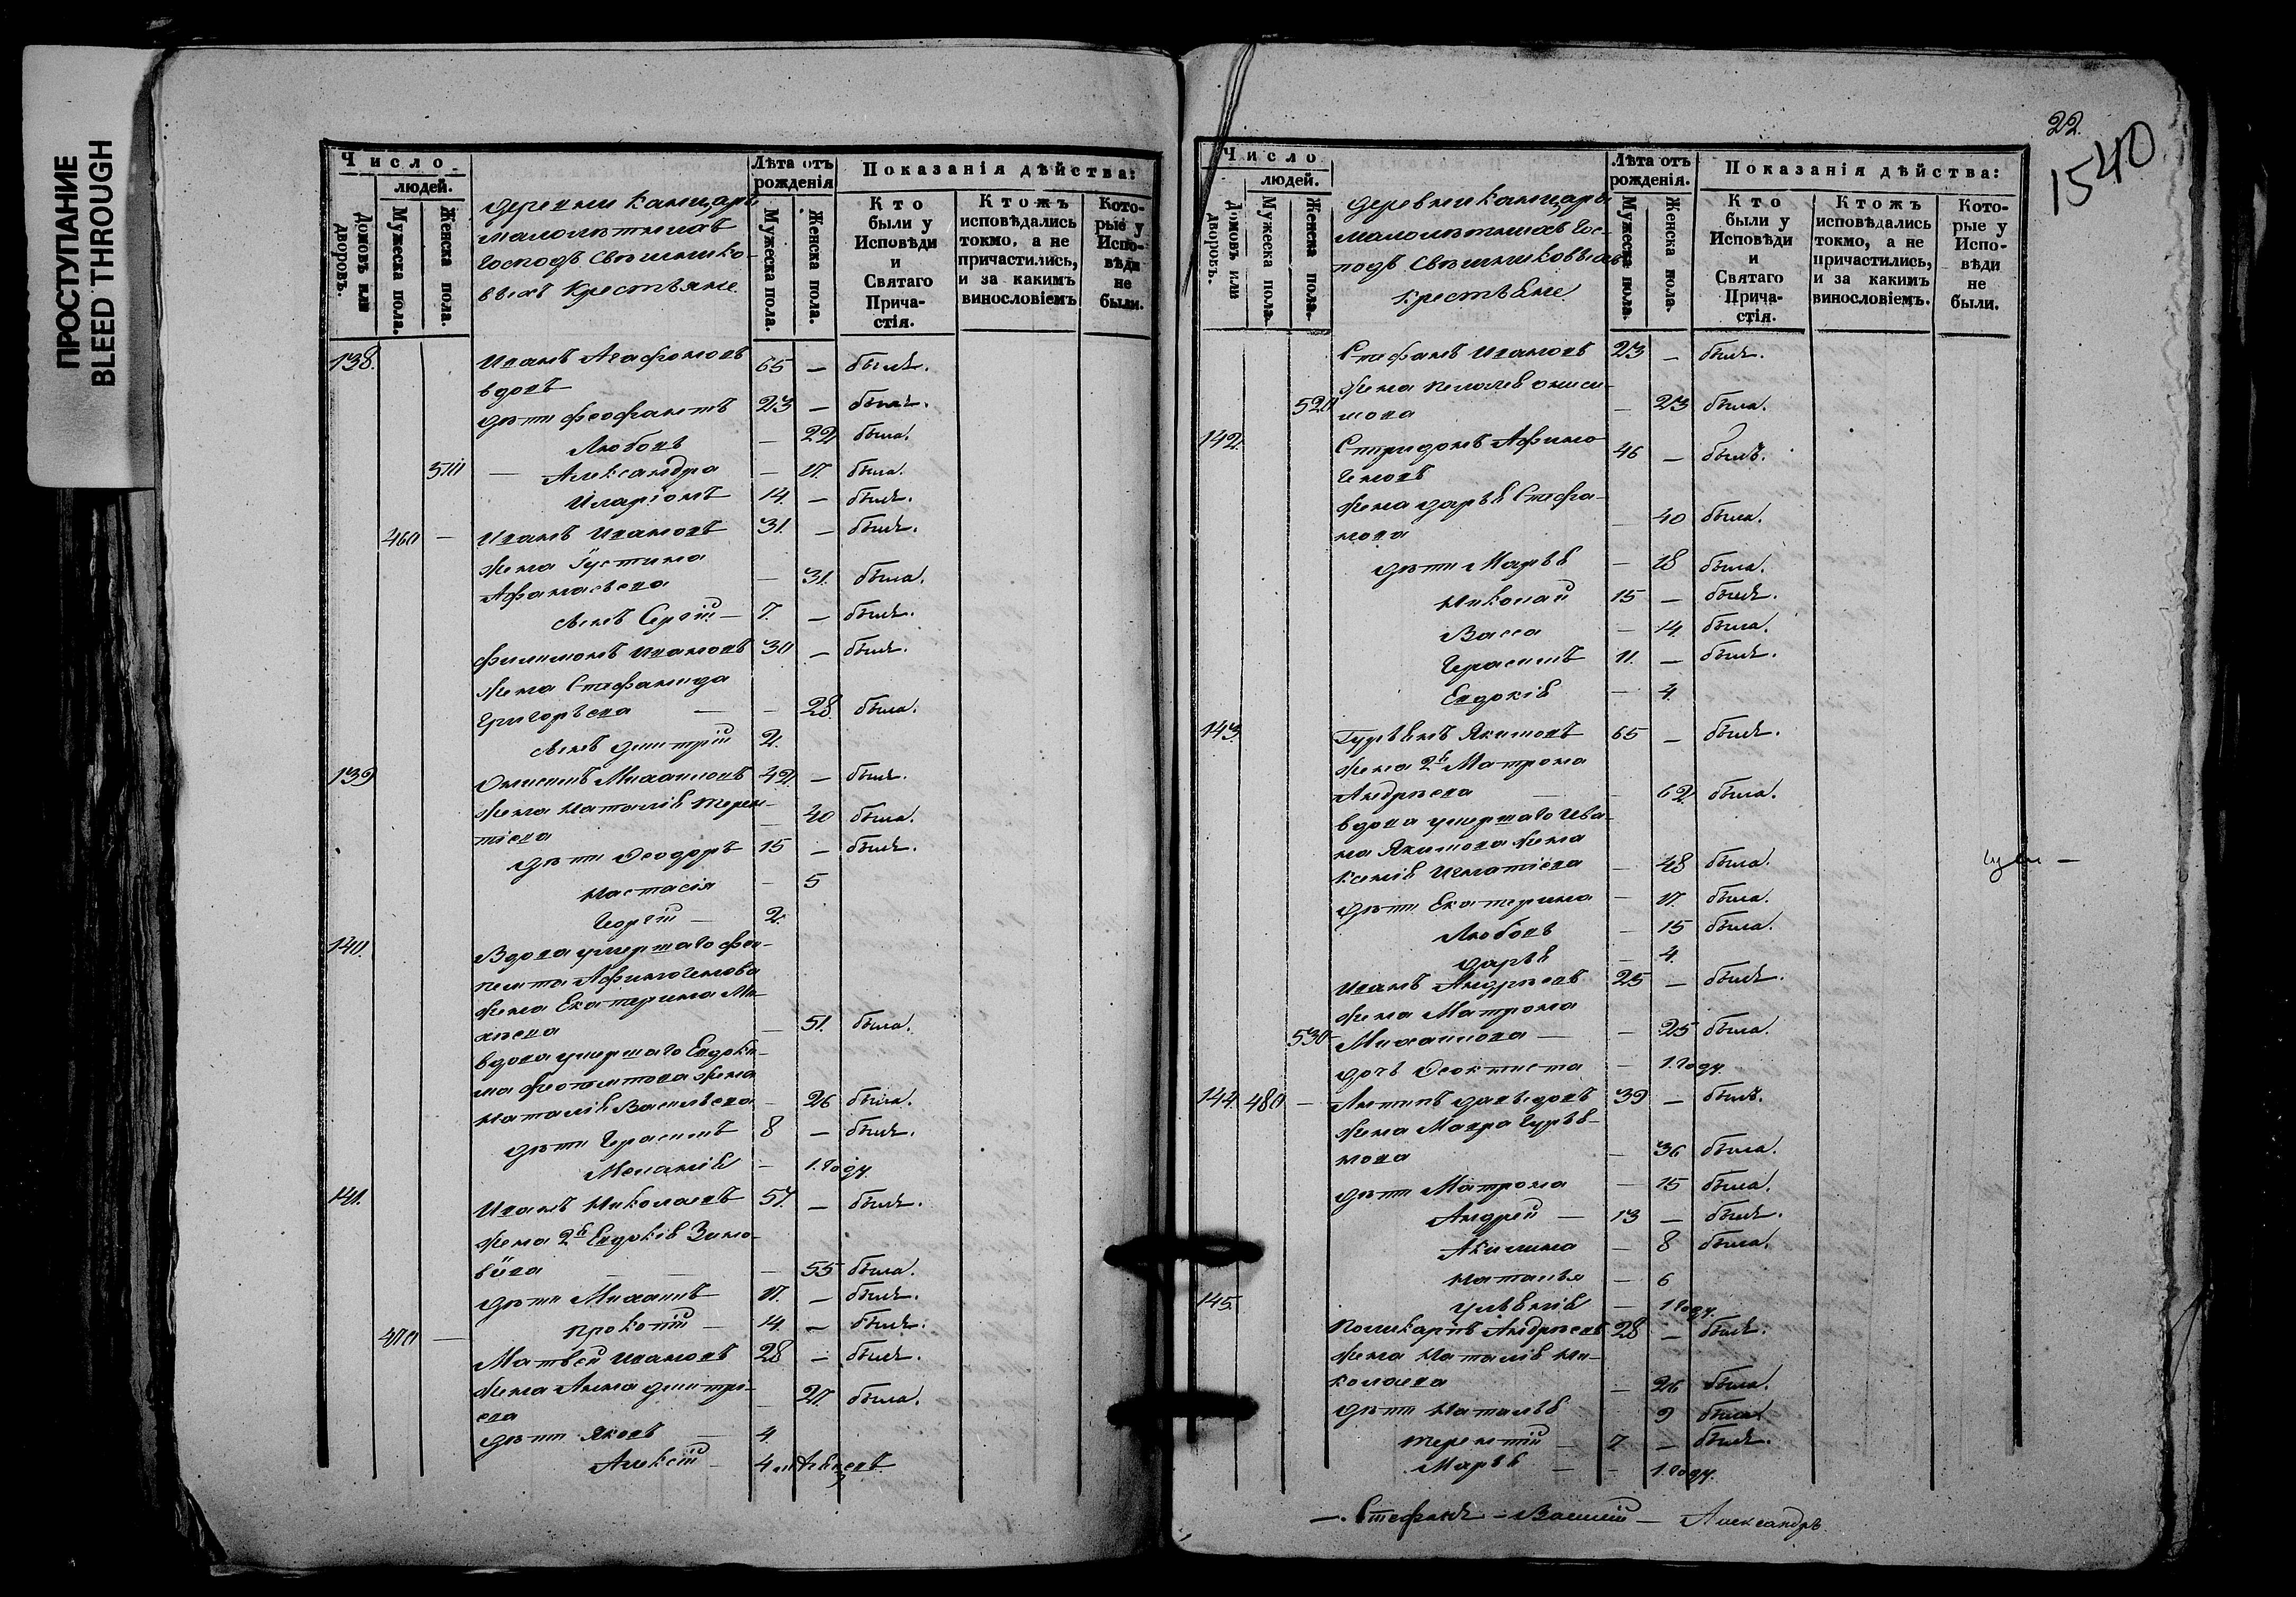 ПРОСТУПАНИЕ
BLEED THROUGH
Число
людей.
Домовъ или дворовъ.
Мужеска пола.
Женска пола.
деревни Канищары
малолѣтныхъ
Господъ Свѣшнико-
выхъ Крестьяне
Лѣта отъ рожденія
Мужеска пола.
Женска пола.
Показанія дѣйства:
Кто были у Исповѣди и Святаго Причастія.
Ктожъ исповѣдались токмо, а не причастились, и за какимъ винословіемъ
Которые у Исповѣди не были.
138. Иванъ Агафоновъ 65 — былъ.
вдовъ
дѣти Феофантъ 23 — былъ.
Любовь — 22 была.
510 — Александра — 17. была.
Иларіонъ 14. — былъ.
460 — Иванъ Ивановъ 31. — былъ.
жена Іустина
Афанасьева — 31. была.
сынъ Сергій — 7. — былъ.
Филимонъ Ивановъ 30 — былъ.
жена Стефанида
Григорьева — — 28. была.
сынъ Димитрій 2.
139 Онисимъ Михаиловъ 42 — былъ.
жена Наталія Терен-
тіева — 40 была.
дѣти Ѳеодоръ 15 — былъ.
Настасія — 5
Георгій — 2.
140. Вдова умершаго Фео-
Афиногенова
жена Екатерина Ми-
хѣева — 51. была.
вдова умершаго Евдоки-
ма жена
Наталія Васильева — 26 была.
дѣти Герасимъ 8 — былъ.
Меланія — 1. году.
141. Иванъ Николаевъ 57. — былъ.
жена 2я Евдокія Зино-
вѣева — — — 55 была.
дѣти Михаилъ 17. — былъ.
Прокопій — 14. — былъ.
470 — Матвей Ивановъ 28 — былъ.
жена Анна Димитрі-
ева — 27. была.
дѣти Яковъ — 4.
Алексій — 4 мѣсяцевъ
22.
1540
Число
людей.
Домовъ или дворовъ.
Мужеска пола.
Женска пола.
деревни Канищары
малолѣтныхъ Гос-
подъ Свѣшниковыхъ
крестьяне
Лѣта отъ рожденія.
Мужеска пола.
Женска пола.
Показанія дѣйства:
Кто были у Исповѣди и Святаго Причастія.
Ктожъ исповѣдались токмо, а не причастились, и за какимъ винословіемъ.
Которые у Исповѣди не были.
Стефанъ Ивановъ 23 — былъ.
жена Пелагея Ониси-
520 мова — 23 была.
142. Спиридонъ Афино-
геновъ 46 — былъ.
жена Дарья Стефа-
нова — 40 была.
дѣти Марья — 18 была.
Николай 15 — былъ.
Васса — 14. была.
Герасимъ 11. — былъ.
Евдокія — 4.
143. Якимовъ 65 — былъ.
жена 2я Матрона
Андрѣева — — 62 была.
вдова умершаго Ива-
на Якимова жена
Ксенія Игнатіева — 48 была.
дѣти Екатерина — 17. была.
Любовь — 15 была.
Дарья — 4.
Иванъ Андрѣевъ 25 — былъ.
жена Матрона
530 — Михаилова — — 25 была.
дочь Ѳеоктиста — 1. году.
144. 480 — Антипъ Давыдовъ 39 — былъ.
жена Мавра Гурья-
нова — 36 была.
дѣти Матрона — 15 была.
Андрей — 13 — былъ.
Акилина — 8 была.
Наталья — 6
Ульянія — 1 году.
145. Поликарпъ Андрѣевъ 28 — былъ.
жена Наталія Ни-
колаева — 26 была.
дѣти Наталья 9 была.
Терентій — 7 — былъ.
Марья — — 1. году.
—. Стефанъ — Василій — Александръ